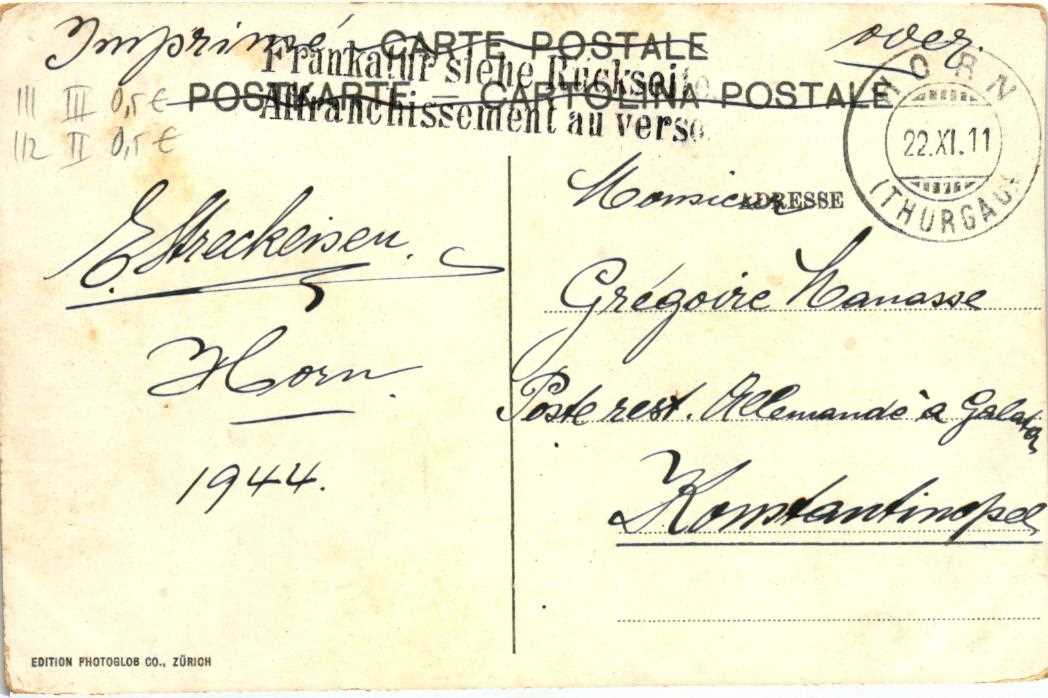 Imprimé
CARTE POSTALE
over.
Frankatur siehe Rückseite
POSTKARTE — CARTOLINA POSTALE
Affranchissement au verso
III III 0,5 €
112 II 0,5 €
HORN
22.XI.11
(THURGAU)
Monsieur
ADRESSE
E. Streckeisen.
Grégoire Manasse
Horn.
Poste rest. Allemande à Galata
1944.
Konstantinopel
EDITION PHOTOGLOB CO., ZÜRICH